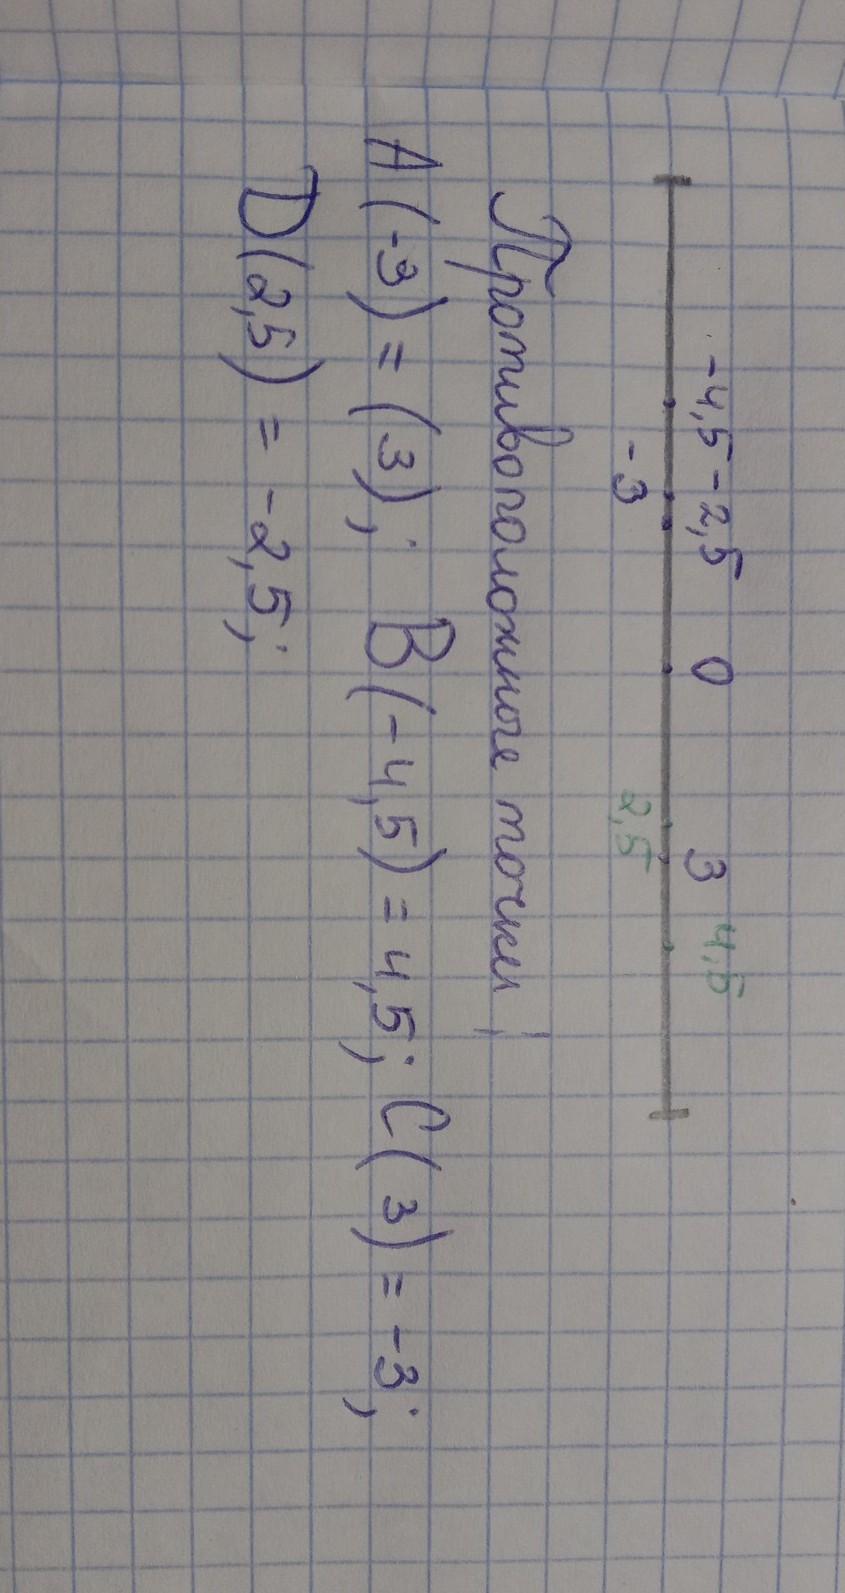 -4,5 -2,5 0 3 4,5
-3 2,5
Противоположные точки;
A(-3) = (3); B(-4,5) = 4,5; C(3) = -3;
D(2,5) = -2,5;